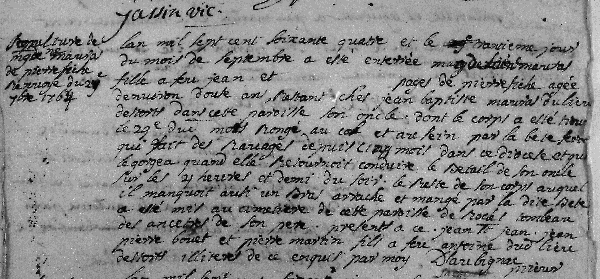 jassin vic.
Sepulture de
magdne mauras
de pierrefiche
Rap
7bre 1764
Lan mil sept cent soixante quatre et le trantieme jour
du mois de septembre a esté enterrée magdelaine mauras
fille a feu jean et pages de pierrefiche agée
denviron douse an habitans chés jean baptiste mauras du lieu
desorts dans cette paroisse son oncle dont le corps a esté
ce 29e du mois Ronge au col et au sein par la bete feroce
qui fait des Ravages depuis cinq mois dans ce diocese et qui
legorgea quand elle Retournoit conduire le betail de son oncle
sur les heures et demi du soir le Reste de son corps auquel
il manquoit aussi un bras arraché et mangé par la dite bete
a esté mis au cimetiere de cette paroisse de Rocles tombeau
des ancetres de son pere presents a ce jean jean
pierre bouet et pierre martin fils a feu antoine du lieu
desorts illiteres de ce enquis par moy Daubignac
prieur
Lan mil sept